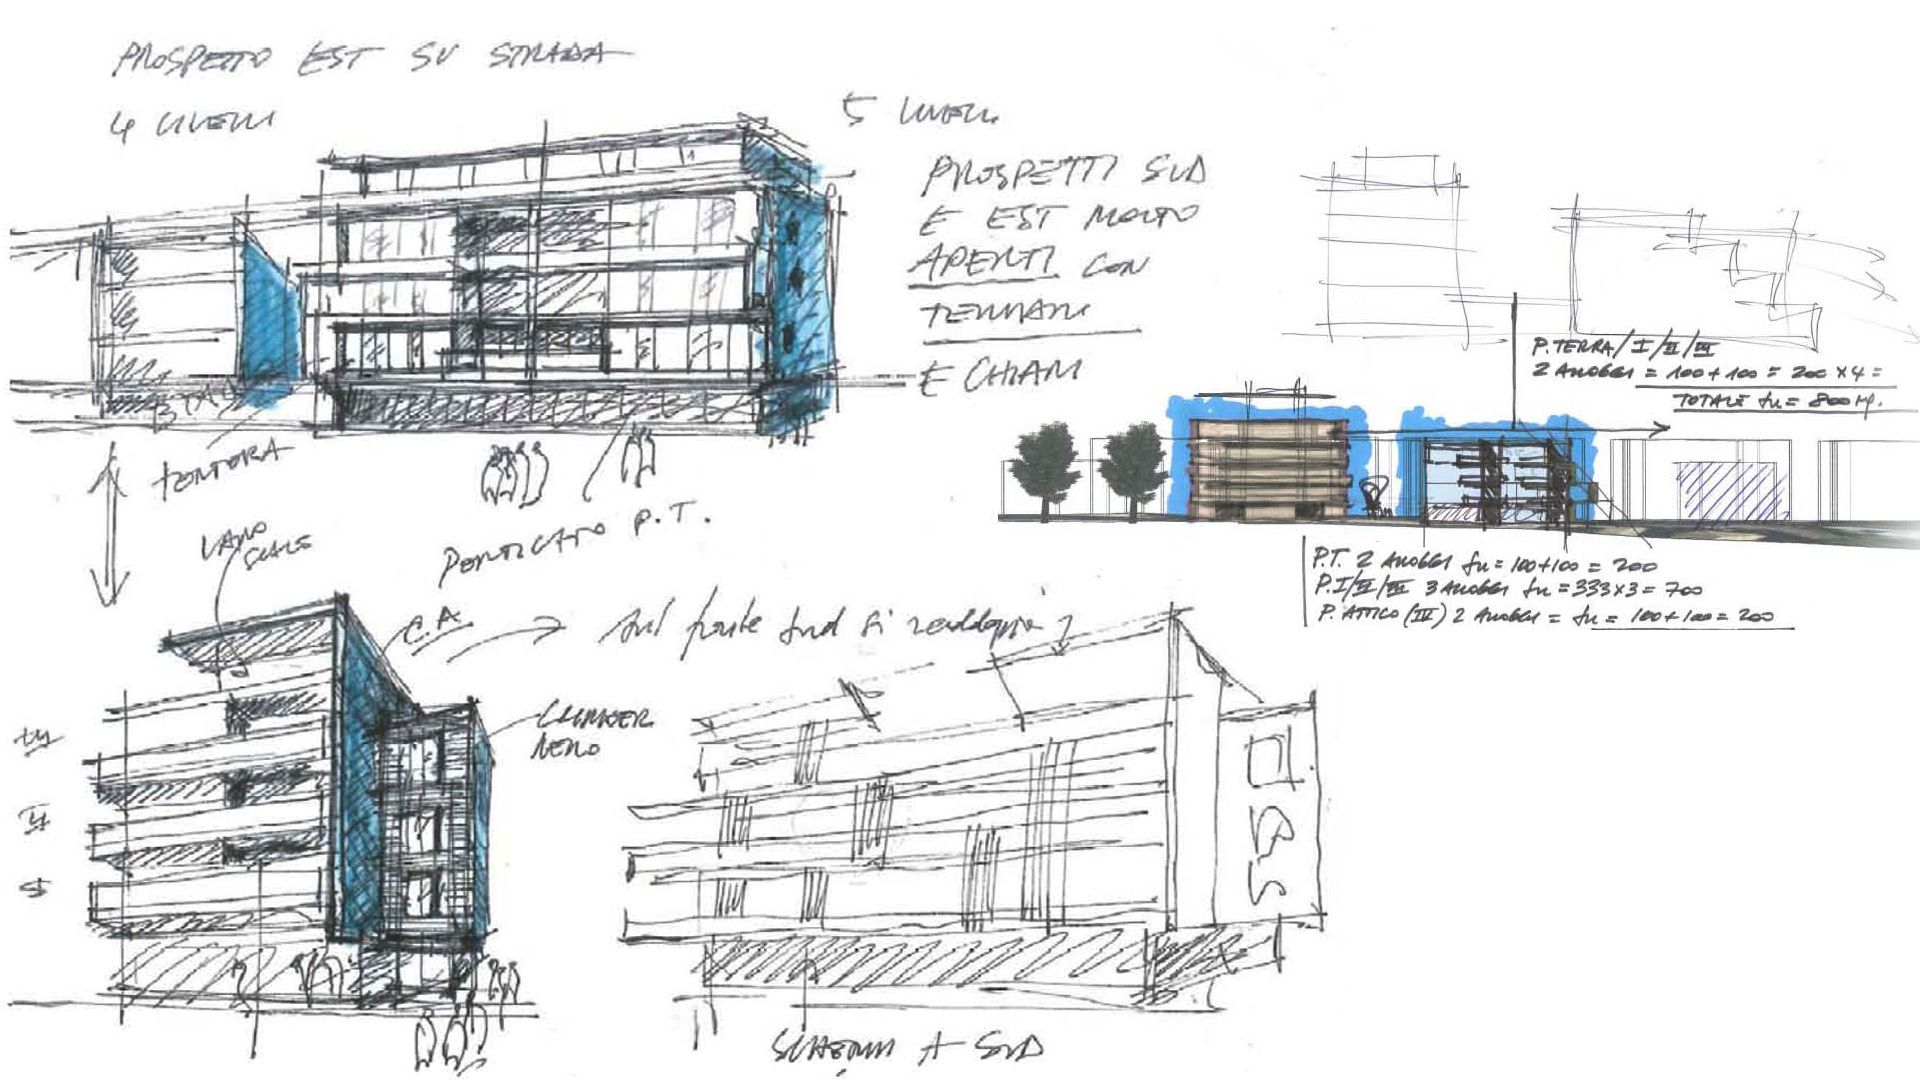 PROSPETTO EST SU STRADA
4 LIVELLI
5 LIVELLI
PROSPETTI SUD
E EST MOLTO
APERTI CON
TERRAZZI
E CHIARI
P. TERRA/I/II/III
2 ALLOGGI = 100+100 = 200 x 4 =
TOTALE Su = 800 Mq.
TORTORA
PORTICATO P.T.
VANO
SCALE
P.T. 2 ALLOGGI Su = 100+100 = 200
P.I/II/III 3 ALLOGGI Su = 333x3 = 700
P. ATTICO (IV) 2 ALLOGGI = Su = 100+100 = 200
C.A.
sul fronte sud si
CLINKER
NERO
SCHERMI A SUD